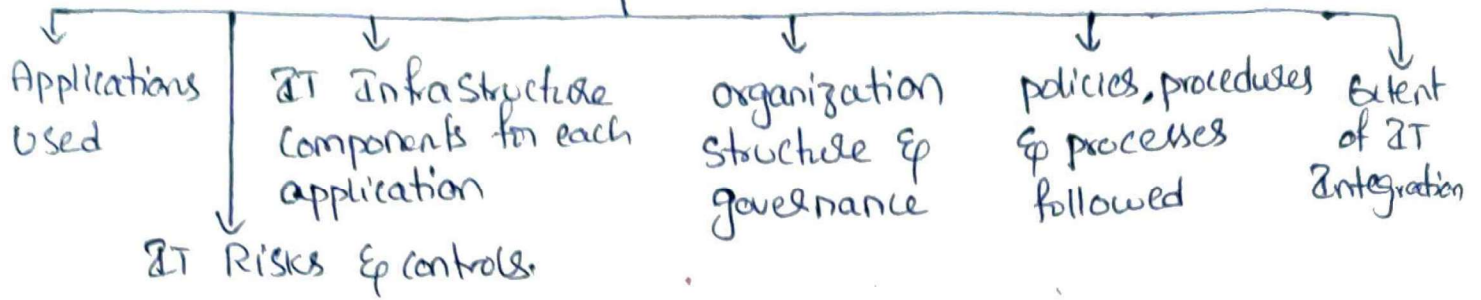 Applications
Used
IT Infrastructure
Components for each
application
organization
structure &
governance
policies, procedures
& processes
followed
Extent
of IT
Integration
IT Risks & controls.